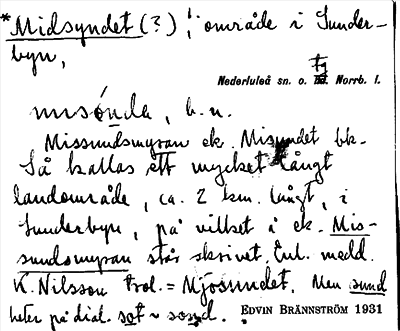 *Midsyndet (?) l: område i Sunder-
byn,
tg
Nederluleå sn. o. hd. Norrb. l.
mısǿnda, b. n.
Missundsmyran ek. Misundet bk.
Så kallas ett mycket långt
landområde, ca. 2 km. långt, i
Sunderbyn, på vilket å ek. Mis-
sundsmyran står skrivet. Enl. medd.
K. Nilsson trol. = Mjosundet. Men sund
heter på dial. sot ~ sond.
EDVIN BRÄNNSTRÖM 1931